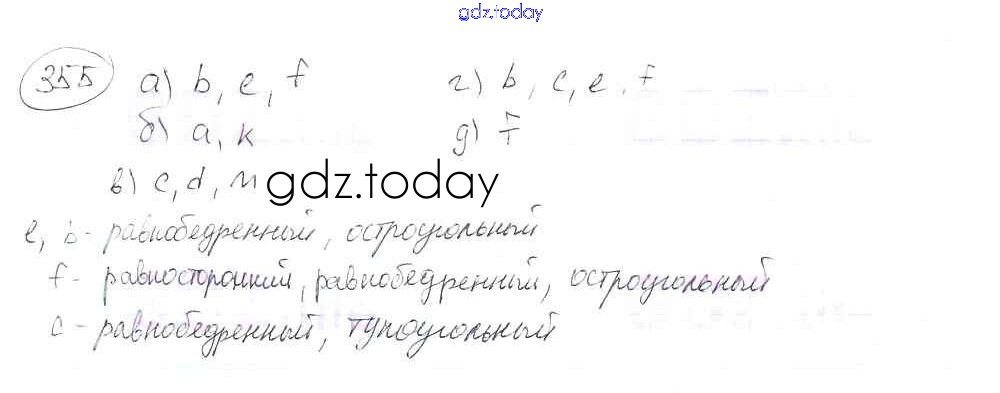 gdz.today
355 а) b, e, f г) b, c, e, f
б) a, к д) f
в) c, d, м gdz.today
e, b - равнобедренный, остроугольный
f - равносторонний, равнобедренный, остроугольный
c - равнобедренный, тупоугольный